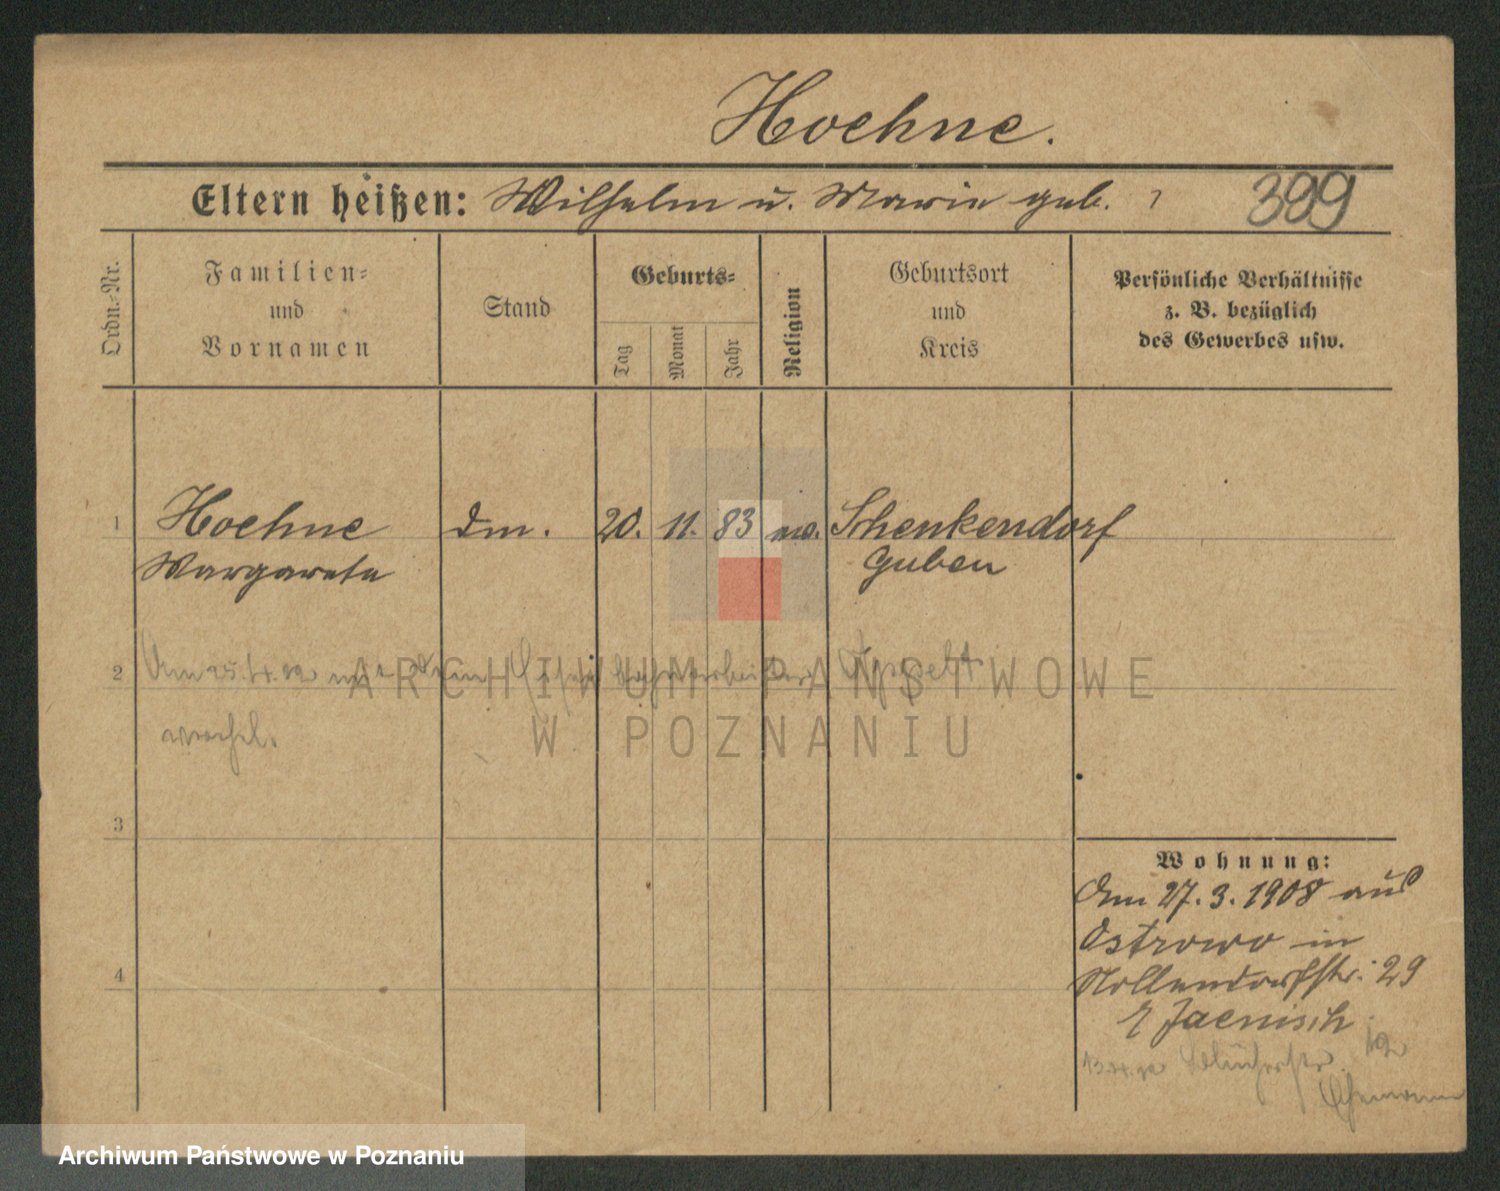 Hoehne.
Eltern heißen: Wilhelm u. Marie geb. ? 399
Ordn.-Nr.
Familien-
und
Vornamen
Stand
Geburts-
Tag
Monat
Jahr
Religion
Geburtsort
und
Kreis
Persönliche Verhältnisse
z. B. bezüglich
des Gewerbes usw.
1 Hoehne Dm. 20. 11. 83 ev. Schenkendorf
Margarete Guben
2 Am
ARCHIWUM PAŃSTWOWE
W POZNANIU
3
Wohnung:
Am 27.3.1908 aus
Ostrowo in
Nollendorfstr. 29
4
Jaenisch
Blücherstr.
Ehemann
Archiwum Państwowe w Poznaniu